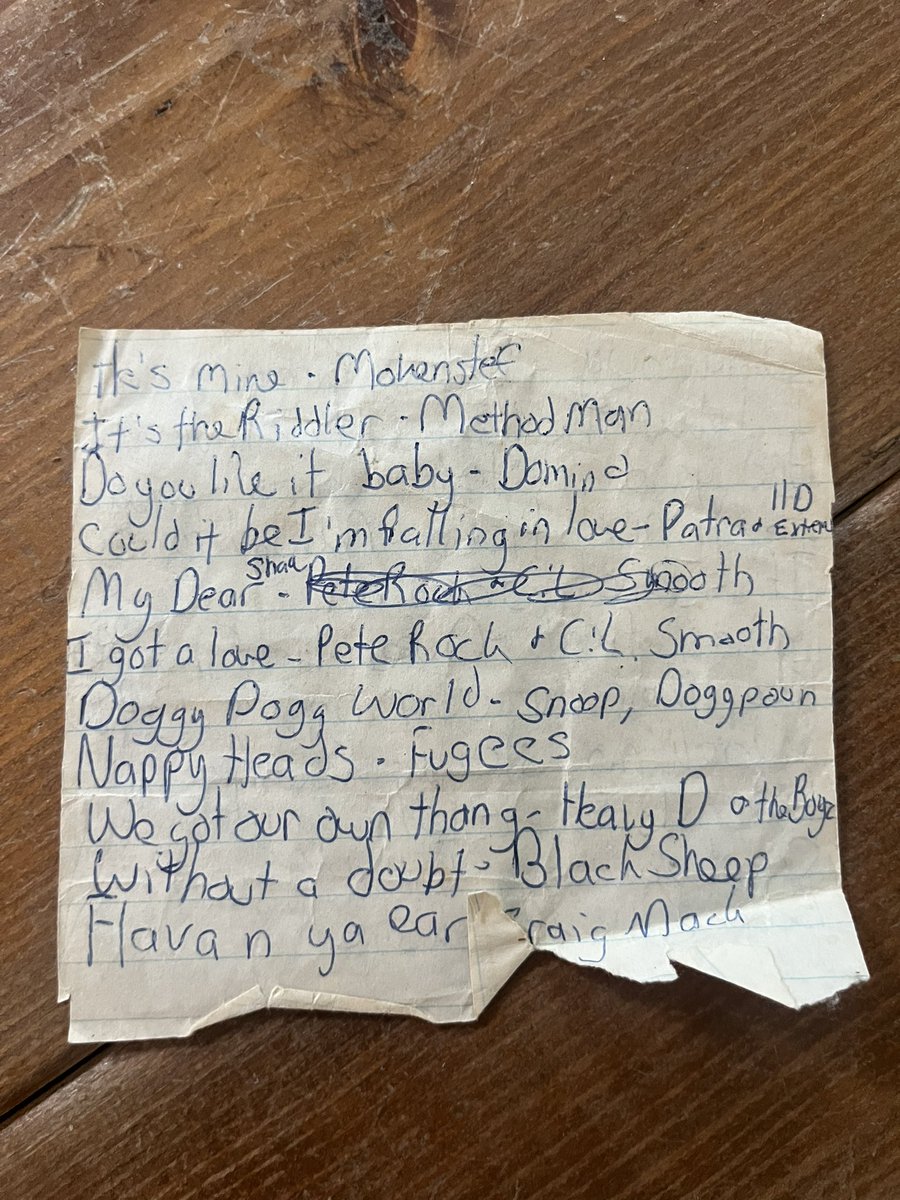 It's mine - Mokenstef
It's the Riddler - Method Man
Do you like it baby - Domino
Could it be I'm falling in love - Patra + 11D Exten
My Dear - Shaq Pete Rock + C.L Smooth
I got a love - Pete Rock + C.L. Smooth
Doggy Dogg World - Snoop, Doggpoun
Nappy Heads - Fugees
We got our own thang - Heavy D + the Boyz
Without a doubt - Black Sheep
Flava n ya ear Craig Mack